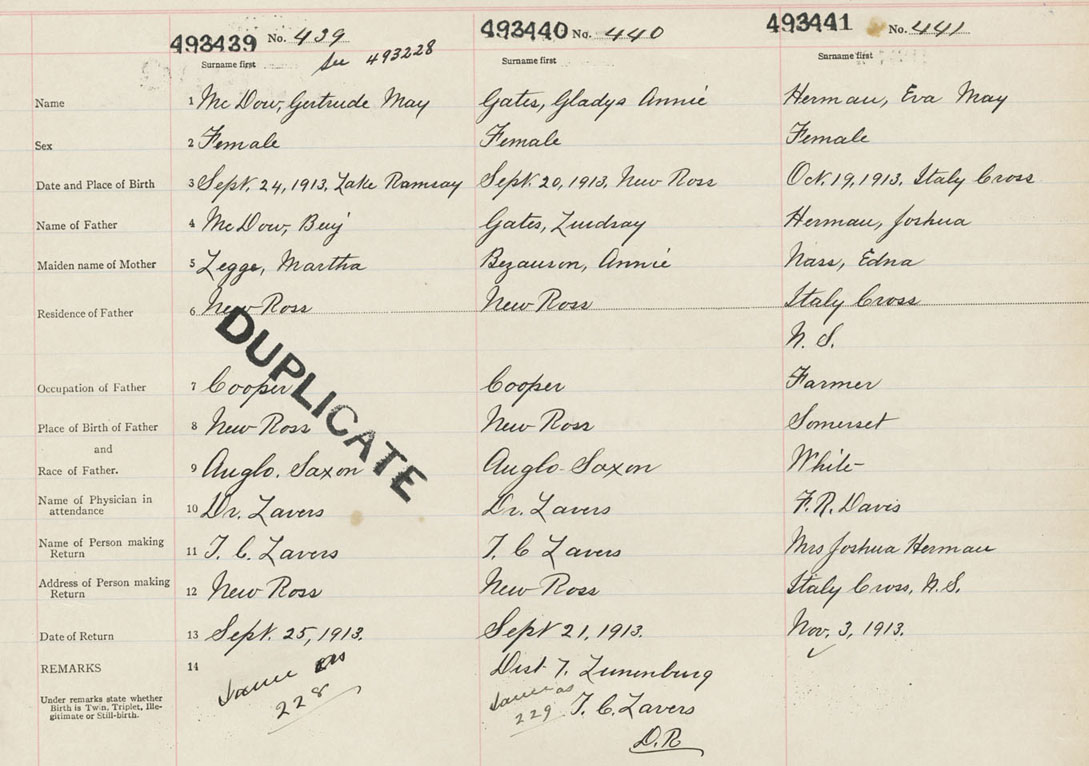 493439 No. 439 493440 No. 440 493441 No. 441
See 493228
Surname first Surname first Surname first
Name 1 Mc Dow, Gertrude May Gates, Gladys Annie Herman, Eva May
Sex 2 Female Female Female
Date and Place of Birth 3 Sept. 24, 1913, Lake Ramsay Sept. 20, 1913, New Ross Oct. 19, 1913. Italy Cross
Name of Father 4 Mc Dow, Benj Gates, Lindsay Herman, Joshua
Maiden name of Mother 5 Legge, Martha Bezanson, Annie Nass, Edna
Residence of Father 6 New Ross New Ross Italy Cross
N. S.
DUPLICATE
Occupation of Father 7 Cooper Cooper Farmer
Place of Birth of Father 8 New Ross New Ross Somerset
and
Race of Father. 9 Anglo. Saxon Anglo-Saxon White
Name of Physician in
attendance 10 Dr. Lavers Dr. Lavers F. R. Davis
Name of Person making
Return 11 T. C. Lavers T. C Lavers Mrs Joshua Herman
Address of Person making
Return 12 New Ross New Ross Italy Cross, N.S.
Date of Return 13 Sept. 25, 1913. Sept 21, 1913. Nov. 3, 1913.
REMARKS 14 Same as Dist 7. Lunenburg
228
Under remarks state whether
Birth is Twin, Triplet, Ille-
gitimate or Still-birth.
Same as
229 T. C. Lavers
D.R